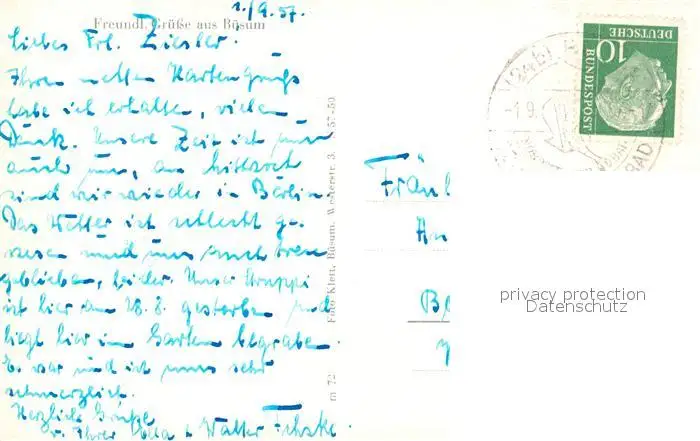 1./9.57.
Freundl. Grüße aus Büsum
Liebes Frl. Ziesler.
Ihren netten Kartengruß
habe ich erhalten, vielen
Dank. Unsere Zeit ist nun
auch um, am Mittwoch
sind wir wieder in Berlin.
Das Wetter ist schlecht ge-
wesen und uns auch treu
geblieben, leider. Unser Struppi
ist hier am 28. 8. gestorben und
liegt hier im Garten begraben.
Es war und ist uns sehr
schmerzlich.
Herzliche Grüße
v. Ihrer Ella & Walter
Foto Klett, Büsum, Westerstr. 3. S 57-59
m 72
DEUTSCHE
BUNDESPOST
10
(24b)
-1.9.
BAD
Fräul
An
Be
privacy protection
Datenschutz